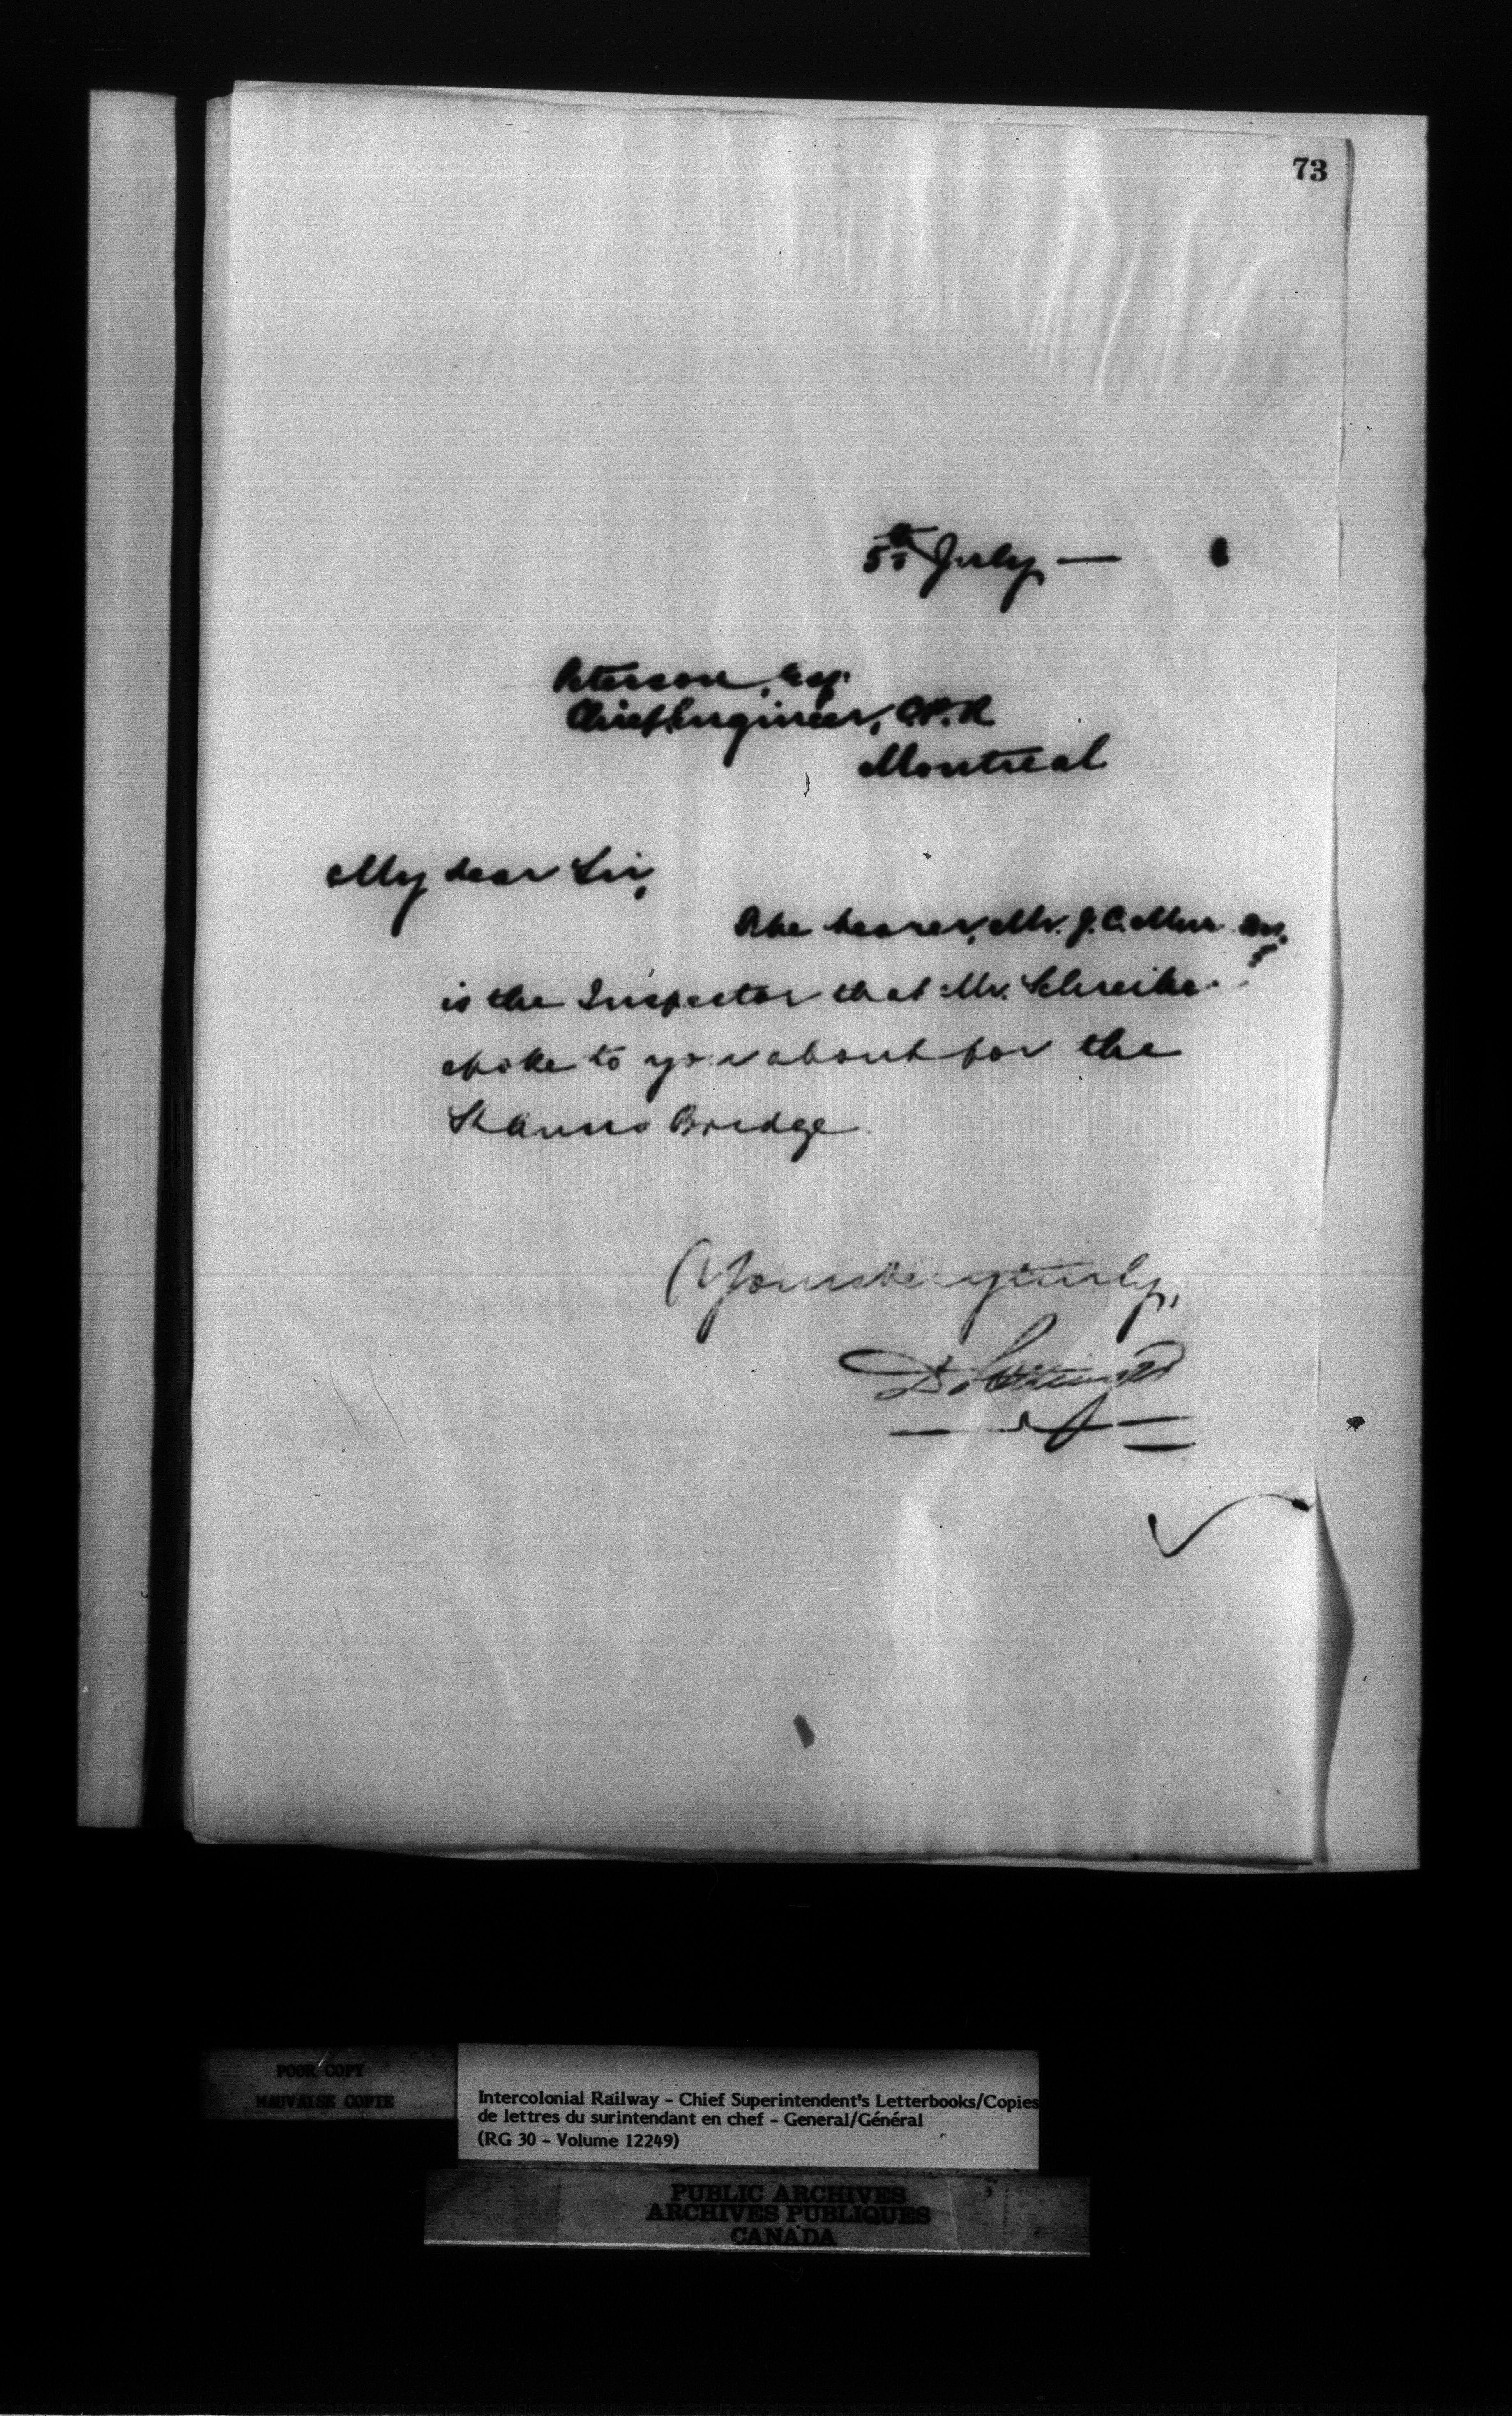 73
5th July —
Peterson, Esq.
Chief Engineer, C.P.R
Montreal
My dear Sir,
The bearer, Mr. J. C.
is the Inspector that Mr. Schreiber
spoke to you about for the
St Anns Bridge.
Yours very truly,
D. Pottinger
POOR COPY
MAUVAISE COPIE
Intercolonial Railway - Chief Superintendent's Letterbooks/Copies
de lettres du surintendant en chef - General/Général
(RG 30 - Volume 12249)
PUBLIC ARCHIVES
ARCHIVES PUBLIQUES
CANADA